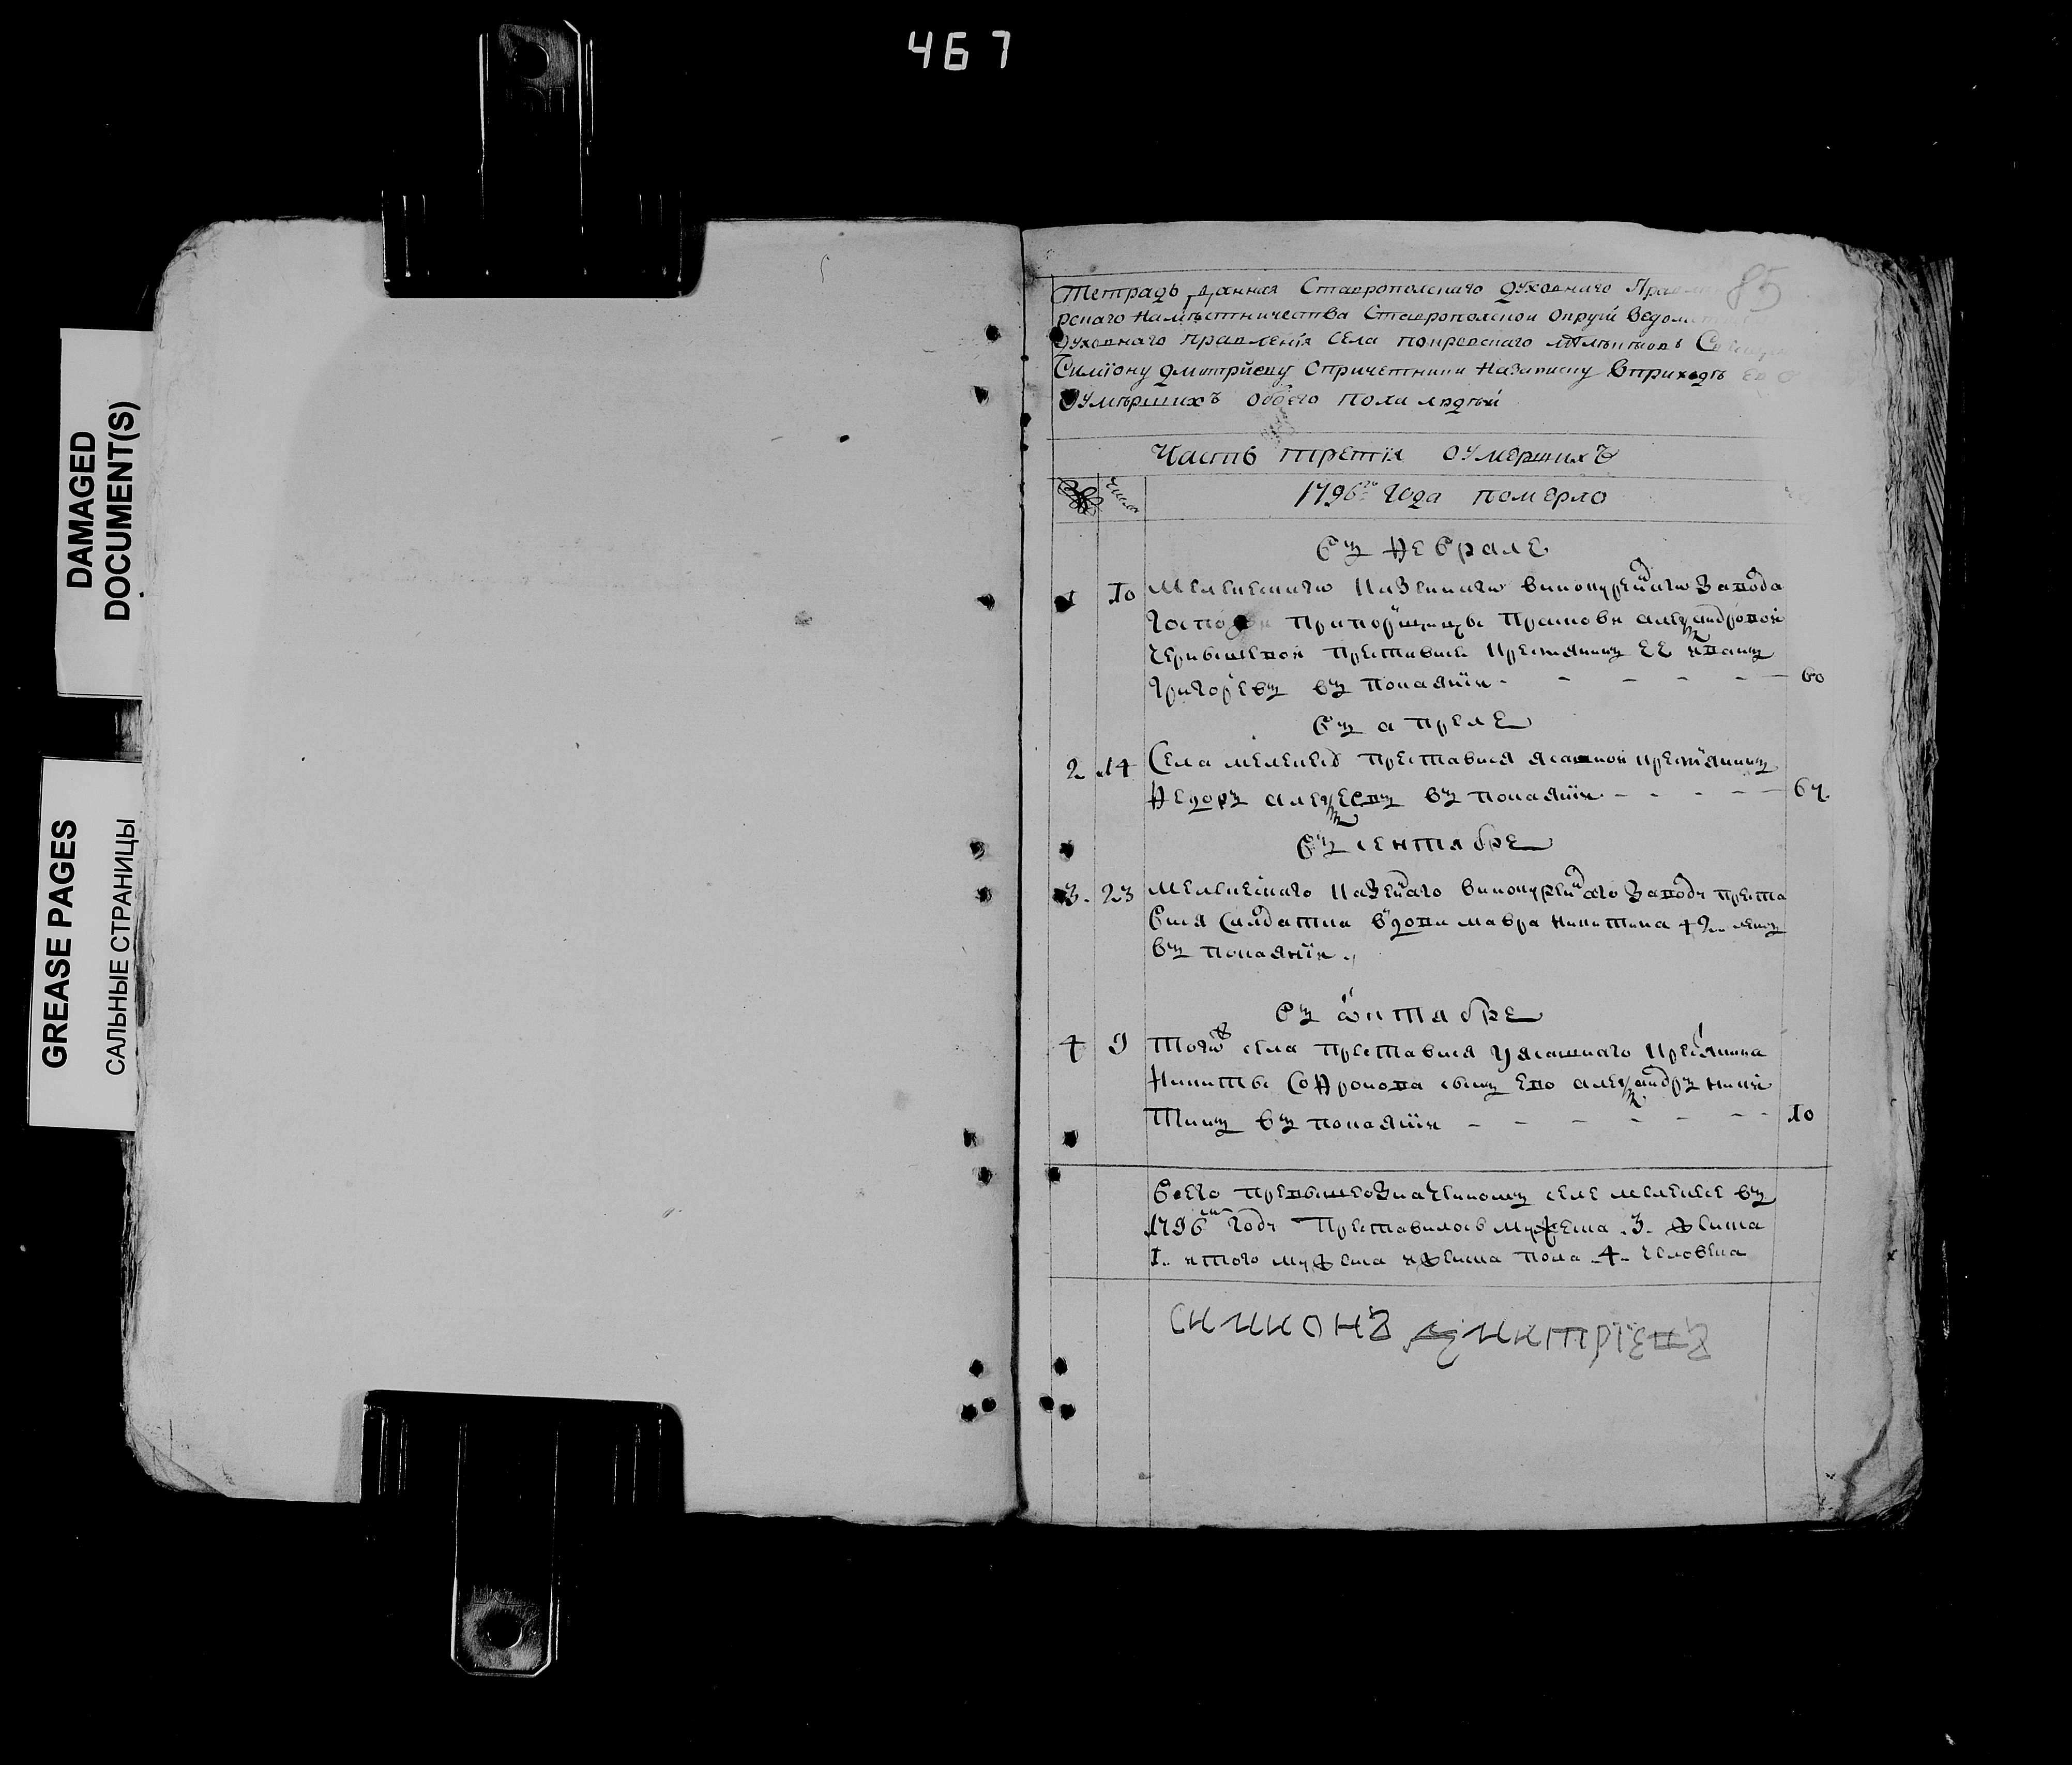 467
DAMAGED
DOCUMENT(S)
GREASE PAGES
САЛЬНЫЕ СТРАНИЦЫ
85
Тетрадь данная Ставрополскаго духовнаго
рскаго намѣстничества Ставрополской округи
духовнаго правления села покровского
Симиону дмитрйеву спричетники назаписку вприходѣ
оумѣршихъ обоего пола людѣй
Часть третїя оумершихъ
Числа
1796го года померло
Въ Феврале
1 10 Мелекескаго казеннаго винокуреннаго завода
Прапорщицы Александровой
преставися крестьянинъ ее иванъ
григорьевъ въ покаянїи 60
Въ апреле
2 14 Села мелекеса преставися ясашной крестьянинъ
Федоръ алексеевъ въ покаянїи 67
Въ сентябре
3. 23 Мелекескаго казеннаго винокуреннаго заводу преста
вися салдатка вдова мавра никитина 42 летъ
въ покаянїи
Въ октябре
4 9 Тогож села преставися уясашнаго крестьянина
Никиты Софронова сынъ ево александръ ники
тинъ въ покаянїи 10
Всего превышеозначенному селе мелекесе въ
1796м году преставилось мужеска 3. женска
1. итого мужеска иженска пола 4. человека
симионъ димитрїевъ